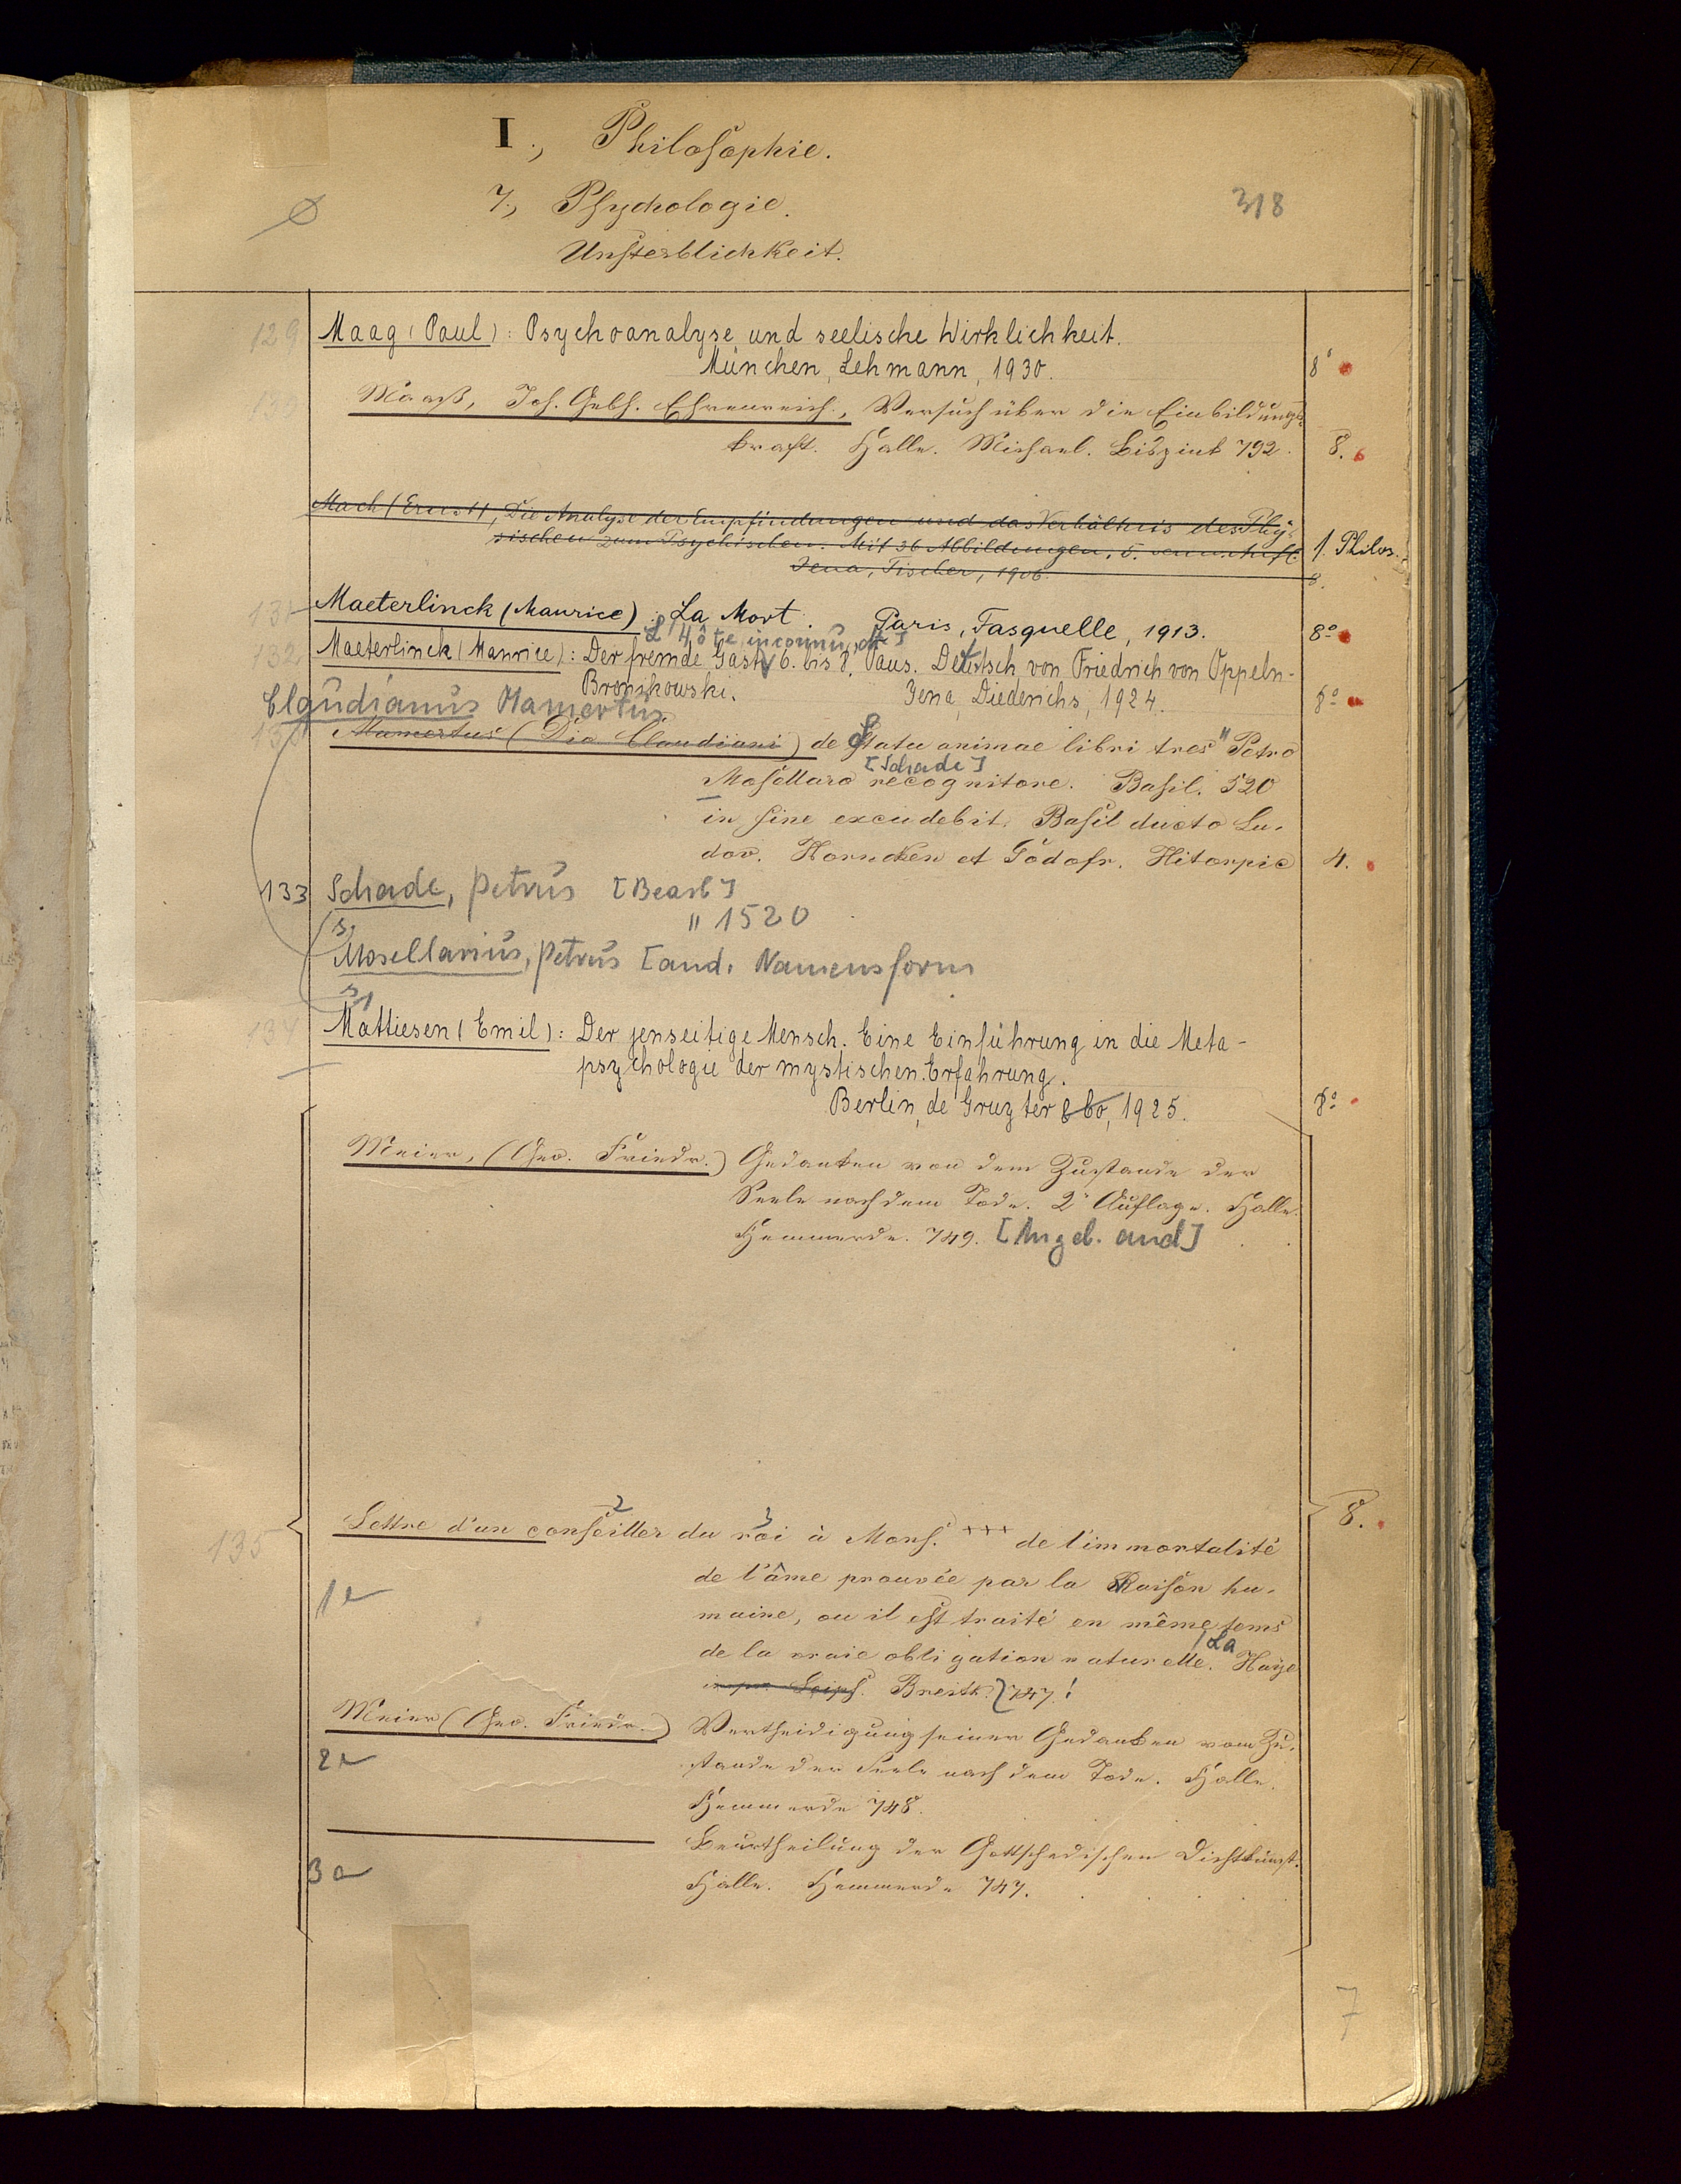 I., Philosophie.
7., Psychologie.
Unsterblichkeit.
318
129 Maag (Paul): Psychoanalyse und seelische Wirklichkeit.
München, Lehmann, 1930. 8°
130 Maaß, Joh. Gebh. Ehrenreich, Versuch über die Einbildungs-
kraft. Halle. Michael. Bispink 792. 8.
Mach (Ernst), Die Analyse der Empfindungen und das Verhältnis des Phy-
sischen zum Psychischen. Mit 36 Abbildungen, 5. verm. Aufl. 1. Philos.
Jena, Fischer, 1906. 8.
131 Maeterlinck (Maurice): La Mort. Paris, Fasquelle, 1913. 8°
[L'Hôte inconnu, dt]
132 Maeterlinck (Maurice): Der fremde Gast, 6. bis 8. Taus. Deutsch von Friedrich von Oppeln-
Bronikowski. Jena, Diederichs, 1924. 8°
Claudianus Mamertus
133 Mamertus (Dia Claudiani) de Statu animae libri tres " Petro
[Schade]
Mosellaro recognitore. Basil. 520
in fine excudebit. Basil ducto Lu-
dov. Horncken et Godofr. Hitorpie 4.
133 Schade, Petrus [Bearb]
" 1520
s.
Mosellanus, Petrus [and. Namensform
s 1
134 Mattiesen (Emil): Der jenseitige Mensch. Eine Einführung in die Meta-
psychologie der mystischen Erfahrung.
Berlin, de Gruyter & Co, 1925. 8°
Meier, (Geo. Friedr.) Gedanken von dem Zustande der
Seele nach dem Tode. 2e Auflage. Halle.
Hemmerde. 749. [Angeb. and]
2 3
Lettre d'un conseiller du roi à Mons. +++ de l'immortalité 8.
135
de l'âme prouvée par la Raison hu-
1e
maine, ou il est traité en même tems
de la vraie obligation naturelle. La Haye
impr. Leips. Breitk. 747. !
Meier (Geo. Friedr.) Vertheidigung seiner Gedanken vom Zu-
2e
stande der Seele nach dem Tode. Halle.
Hemmerde 748.
Beurtheilung der Gottschedischen Dichtkunst.
3e
Halle. Hemmerde 747.
7